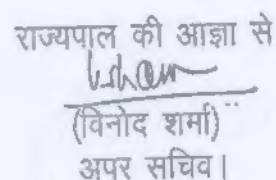 राज्यपाल की आज्ञा से
(विनोद शर्मा)
अपर सचिव।